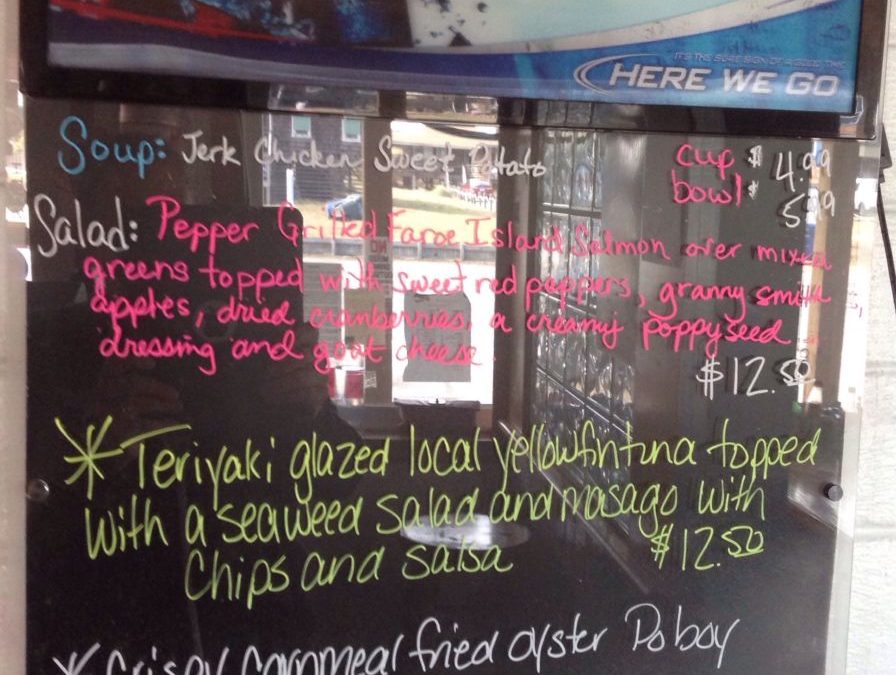 IT'S THE SURE SIGN OF A GOOD TIME
HERE WE GO
Soup: Jerk Chicken Sweet Potato cup $ 4.99
bowl $ 5.99
Salad: Pepper Grilled Faroe Island Salmon over mixed
greens topped with sweet red peppers, granny smith
apples, dried cranberries, a creamy poppyseed
dressing and goat cheese.
$12.50
* Teriyaki glazed local yellowfin tuna topped
with a seaweed salad and masago with
chips and salsa $12.50
* Crispy Cornmeal fried oyster Po boy